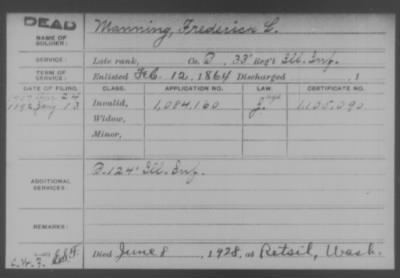 DEAD
NAME OF SOLDIER: Manning, Frederick C.
SERVICE: Late rank, Co. D, 33" Reg't Ill. Inf.
TERM OF SERVICE: Enlisted Feb. 12, 1864 Discharged , 1
DATE OF FILING. CLASS. APPLICATION NO. LAW. CERTIFICATE NO.
24
1892 13 Invalid, 1,084,160 1,105,090
Widow,
Minor,
ADDITIONAL SERVICES: 124" Ill. Inf.
REMARKS:
Died June 8, 1928, at Retsil, Wash.